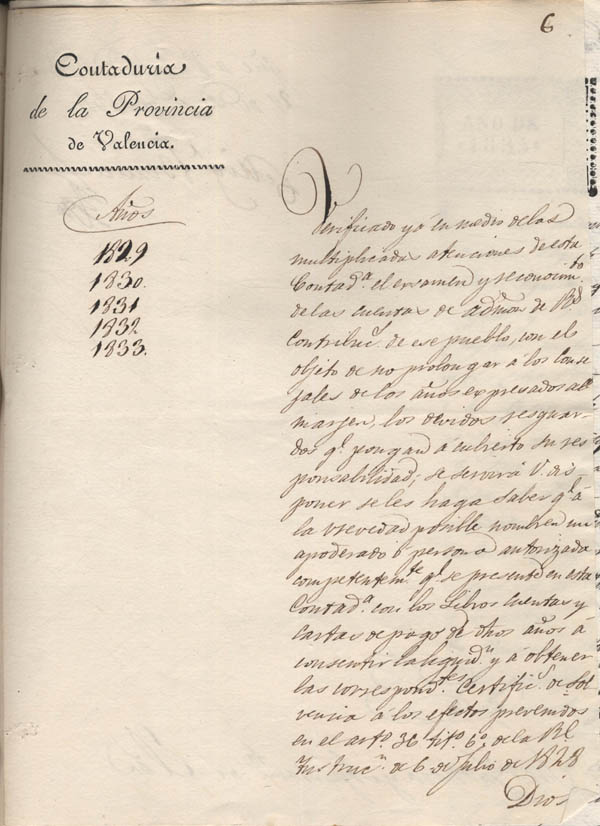 6
Contaduría
de la Provincia
de Valencia.
Años
1829
1830.
1831
1832
1833.
Verificado yá en medio de las
multiplicadas atenciones de esta
Contad.ª el ecsamen y reconocim.to
de las cuentas de admon de R.s
Contribuc.s de ese pueblo, con el
objeto de no prolongar á los Conse
jales de los años expresados al
marjen, los devidos resguar
dos q.e pongan á cubierto su res
ponsabilidad; se servirá V. dis
poner se les haga saber q.e á
la vrevedad posible nombren un
apoderado ó persona autorizada
competentem.te q.e se presente en esta
Contad.ª con los Libros Cuentas y
Cartas de pago de dhos años á
consentir la liquid.n y á obtener
las correspond.tes Certific.s de Sol
vencia á los efectos prevenidos
en el art.o 36 tit.o 6.o de la R.l
Instruc.n de 6 de Julio de 1828
Dios